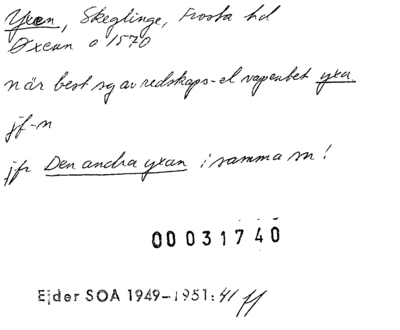 Yxen, Skeglinge, Frosta hd
Øxenn o 1570
när best sg av redskaps- el vapenbet yxa.
jf-n
jfr Den andra yxan i samma sn!
00031740
Ejder SOA 1949-1951: 41 ff